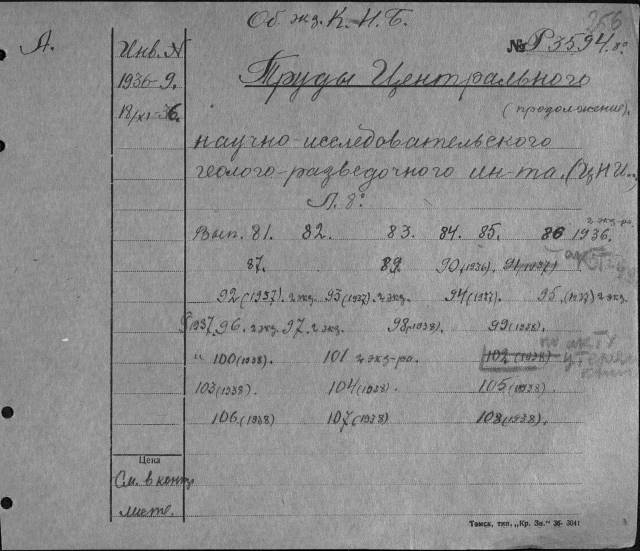 Об. экз. К. Н. Б.
256
А.
Инв. N
№ Р3594.8º
1936-9.
Труды Центрального
(продолжение).
18/XI-36.
научно-исследовательского
геолого-разведочного ин-та. (ЦНИ..
Л. 8º
2 экз-ра.
Вып. 81. 82. 83. 84. 85. 86 1936.
87. 89. 90(1936) 91(1937)
92(1937). 2 экз. 93(1937). 2 экз. 94(1937) 95. (1937) 2 экз.
1937. 96. 2 экз. 97. 2 экз. 98(1938). 99(1938).
по акту
" 100(1938). 101 2 экз-ра. 102(1938)
103(1938) 104(1938). 105(1938).
106(1938) 107(1938) 108(1938).
Цена
См. в конц.
листе.
Томск, тип. „Кр. Зн." 36- 3041